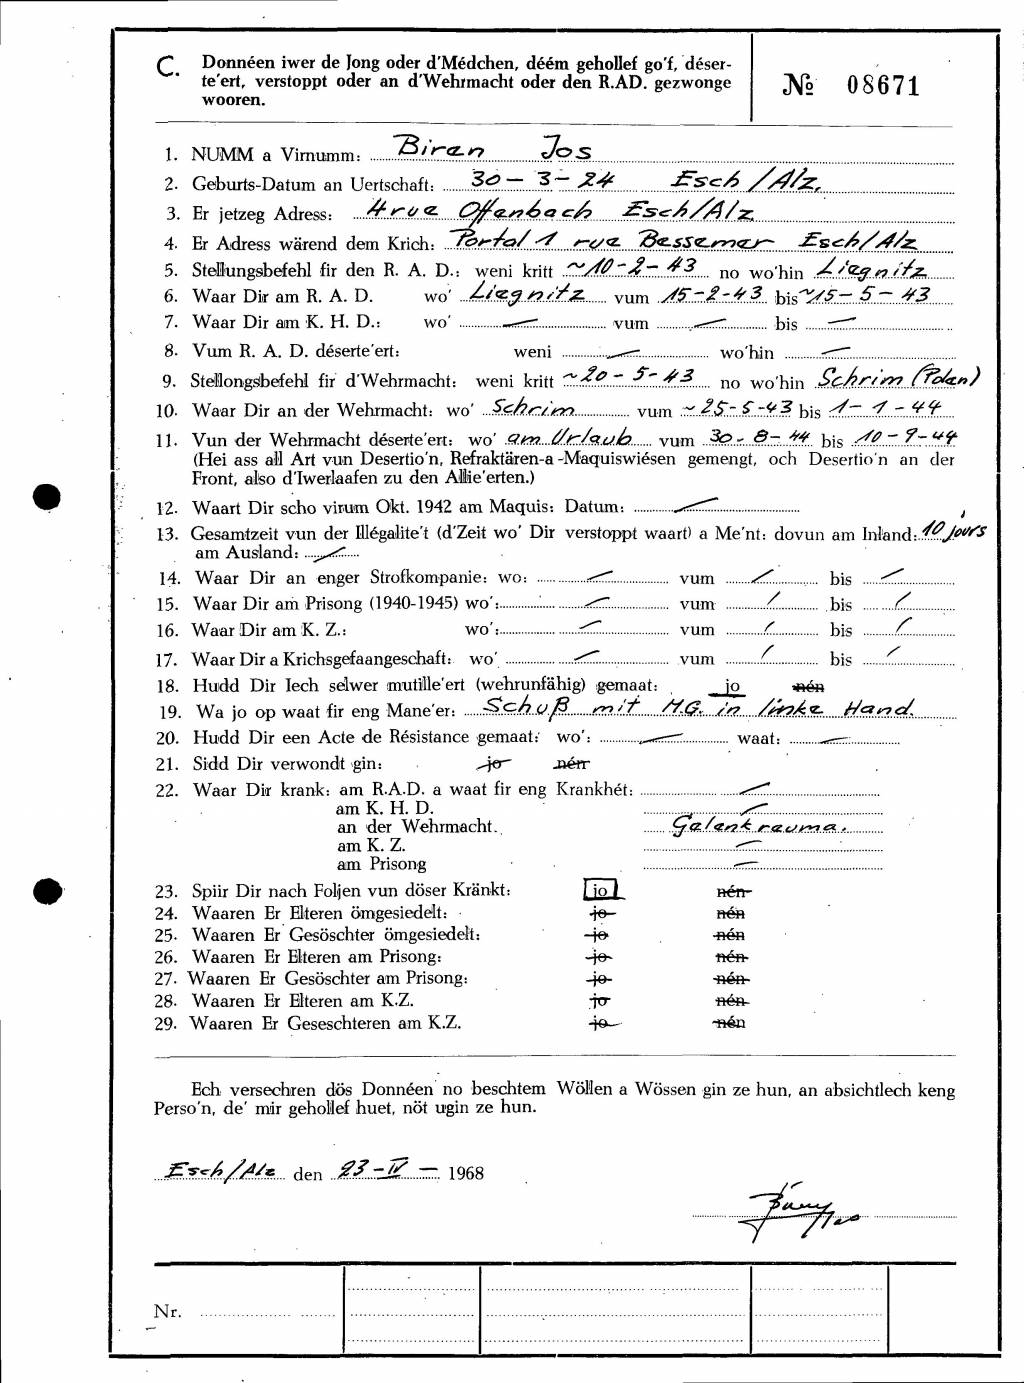 C. Donnéen iwer de Jong oder d'Médchen, déém gehollef go'f, déser-
te'ert, verstoppt oder an d'Wehrmacht oder den R.AD. gezwonge
wooren.
№ 08671
1. NUMM a Virnumm: Biren Jos
2. Geburts-Datum an Uertschaft: 30-3-24 Esch/Alz.
3. Er jetzeg Adress: 4 rue Offenbach Esch/Alz
4. Er Adress wärend dem Krich: Portal 1 rue Bessemer Esch/Alz
5. Stellungsbefehl fir den R. A. D.: weni kritt ~10-2-43 no wo'hin Liegnitz
6. Waar Dir am R. A. D. wo' Liegnitz vum 15-2-43 bis ~15-5-43
7. Waar Dir am K. H. D.: wo' — vum — bis —
8. Vum R. A. D. déserte'ert: weni — wo'hin —
9. Stellongsbefehl fir d'Wehrmacht: weni kritt ~20-5-43 no wo'hin Schrim (Polen)
10. Waar Dir an der Wehrmacht: wo' Schrim vum ~25-5-43 bis 1-1-44
11. Vun der Wehrmacht déserte'ert: wo' am Urlaub vum 30-8-44 bis 10-9-44
(Hei ass all Art vun Desertio'n, Refraktären-a-Maquiswiésen gemengt, och Desertio'n an der
Front, also d'Iwerlaafen zu den Allie'erten.)
12. Waart Dir scho virum Okt. 1942 am Maquis: Datum: —
13. Gesamtzeit vun der Illégalite't (d'Zeit wo' Dir verstoppt waart) a Me'nt: dovun am Inland: 10 jours
am Ausland: —
14. Waar Dir an enger Strofkompanie: wo: — vum / bis —
15. Waar Dir am Prisong (1940-1945) wo': — vum / bis /
16. Waar Dir am K. Z.: wo': — vum / bis /
17. Waar Dir a Krichsgefaangeschaft: wo' — vum / bis /
18. Hudd Dir Iech selwer mutille'ert (wehrunfähig) gemaat: jo nén
19. Wa jo op waat fir eng Mane'er: Schuß mit M.G. in linke Hand.
20. Hudd Dir een Acte de Résistance gemaat: wo': — waat: —
21. Sidd Dir verwondt gin: jo nén
22. Waar Dir krank: am R.A.D. a waat fir eng Krankhét: —
am K. H. D. —
an der Wehrmacht. Gelenkreuma.
am K. Z. —
am Prisong —
23. Spiir Dir nach Foljen vun döser Kränkt: jo nén
24. Waaren Er Elteren ömgesiedelt: jo nén
25. Waaren Er Gesöschter ömgesiedelt: jo nén
26. Waaren Er Elteren am Prisong: jo nén
27. Waaren Er Gesöschter am Prisong: jo nén
28. Waaren Er Elteren am K.Z. jo nén
29. Waaren Er Geseschteren am K.Z. jo nén
Ech versechren dös Donnéen no beschtem Wöllen a Wössen gin ze hun, an absichtlech keng
Perso'n, de' mir gehollef huet, nöt ugin ze hun.
Esch/Alz den 23-IV- 1968
Nr.